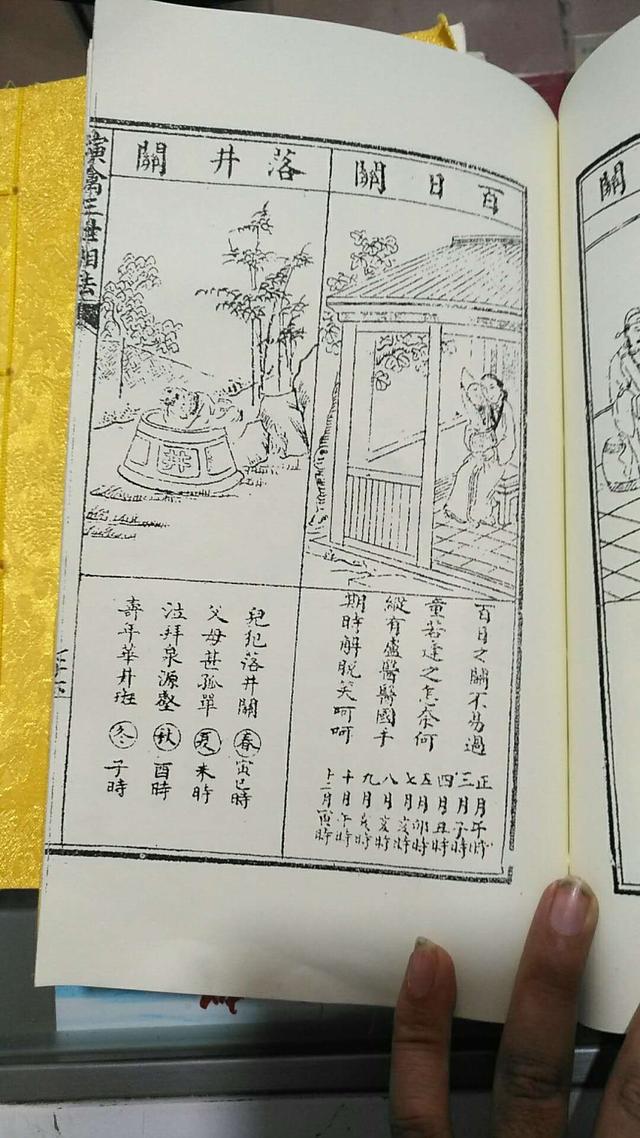 百日關
百日之關不易過
童若逢之怎奈何
縱有盧醫醫國手
期時解脫笑呵呵
正月午時
三月子時
四月丑時
五月卯時
七月亥時
八月亥時
九月亥時
十月午時
十二月寅時
落井關
井
兒犯落井關
父母甚孤單
泣拜泉源盤
壽年華井斑
春 寅巳時
夏 未時
秋 酉時
冬 子時
演禽三世相法
關